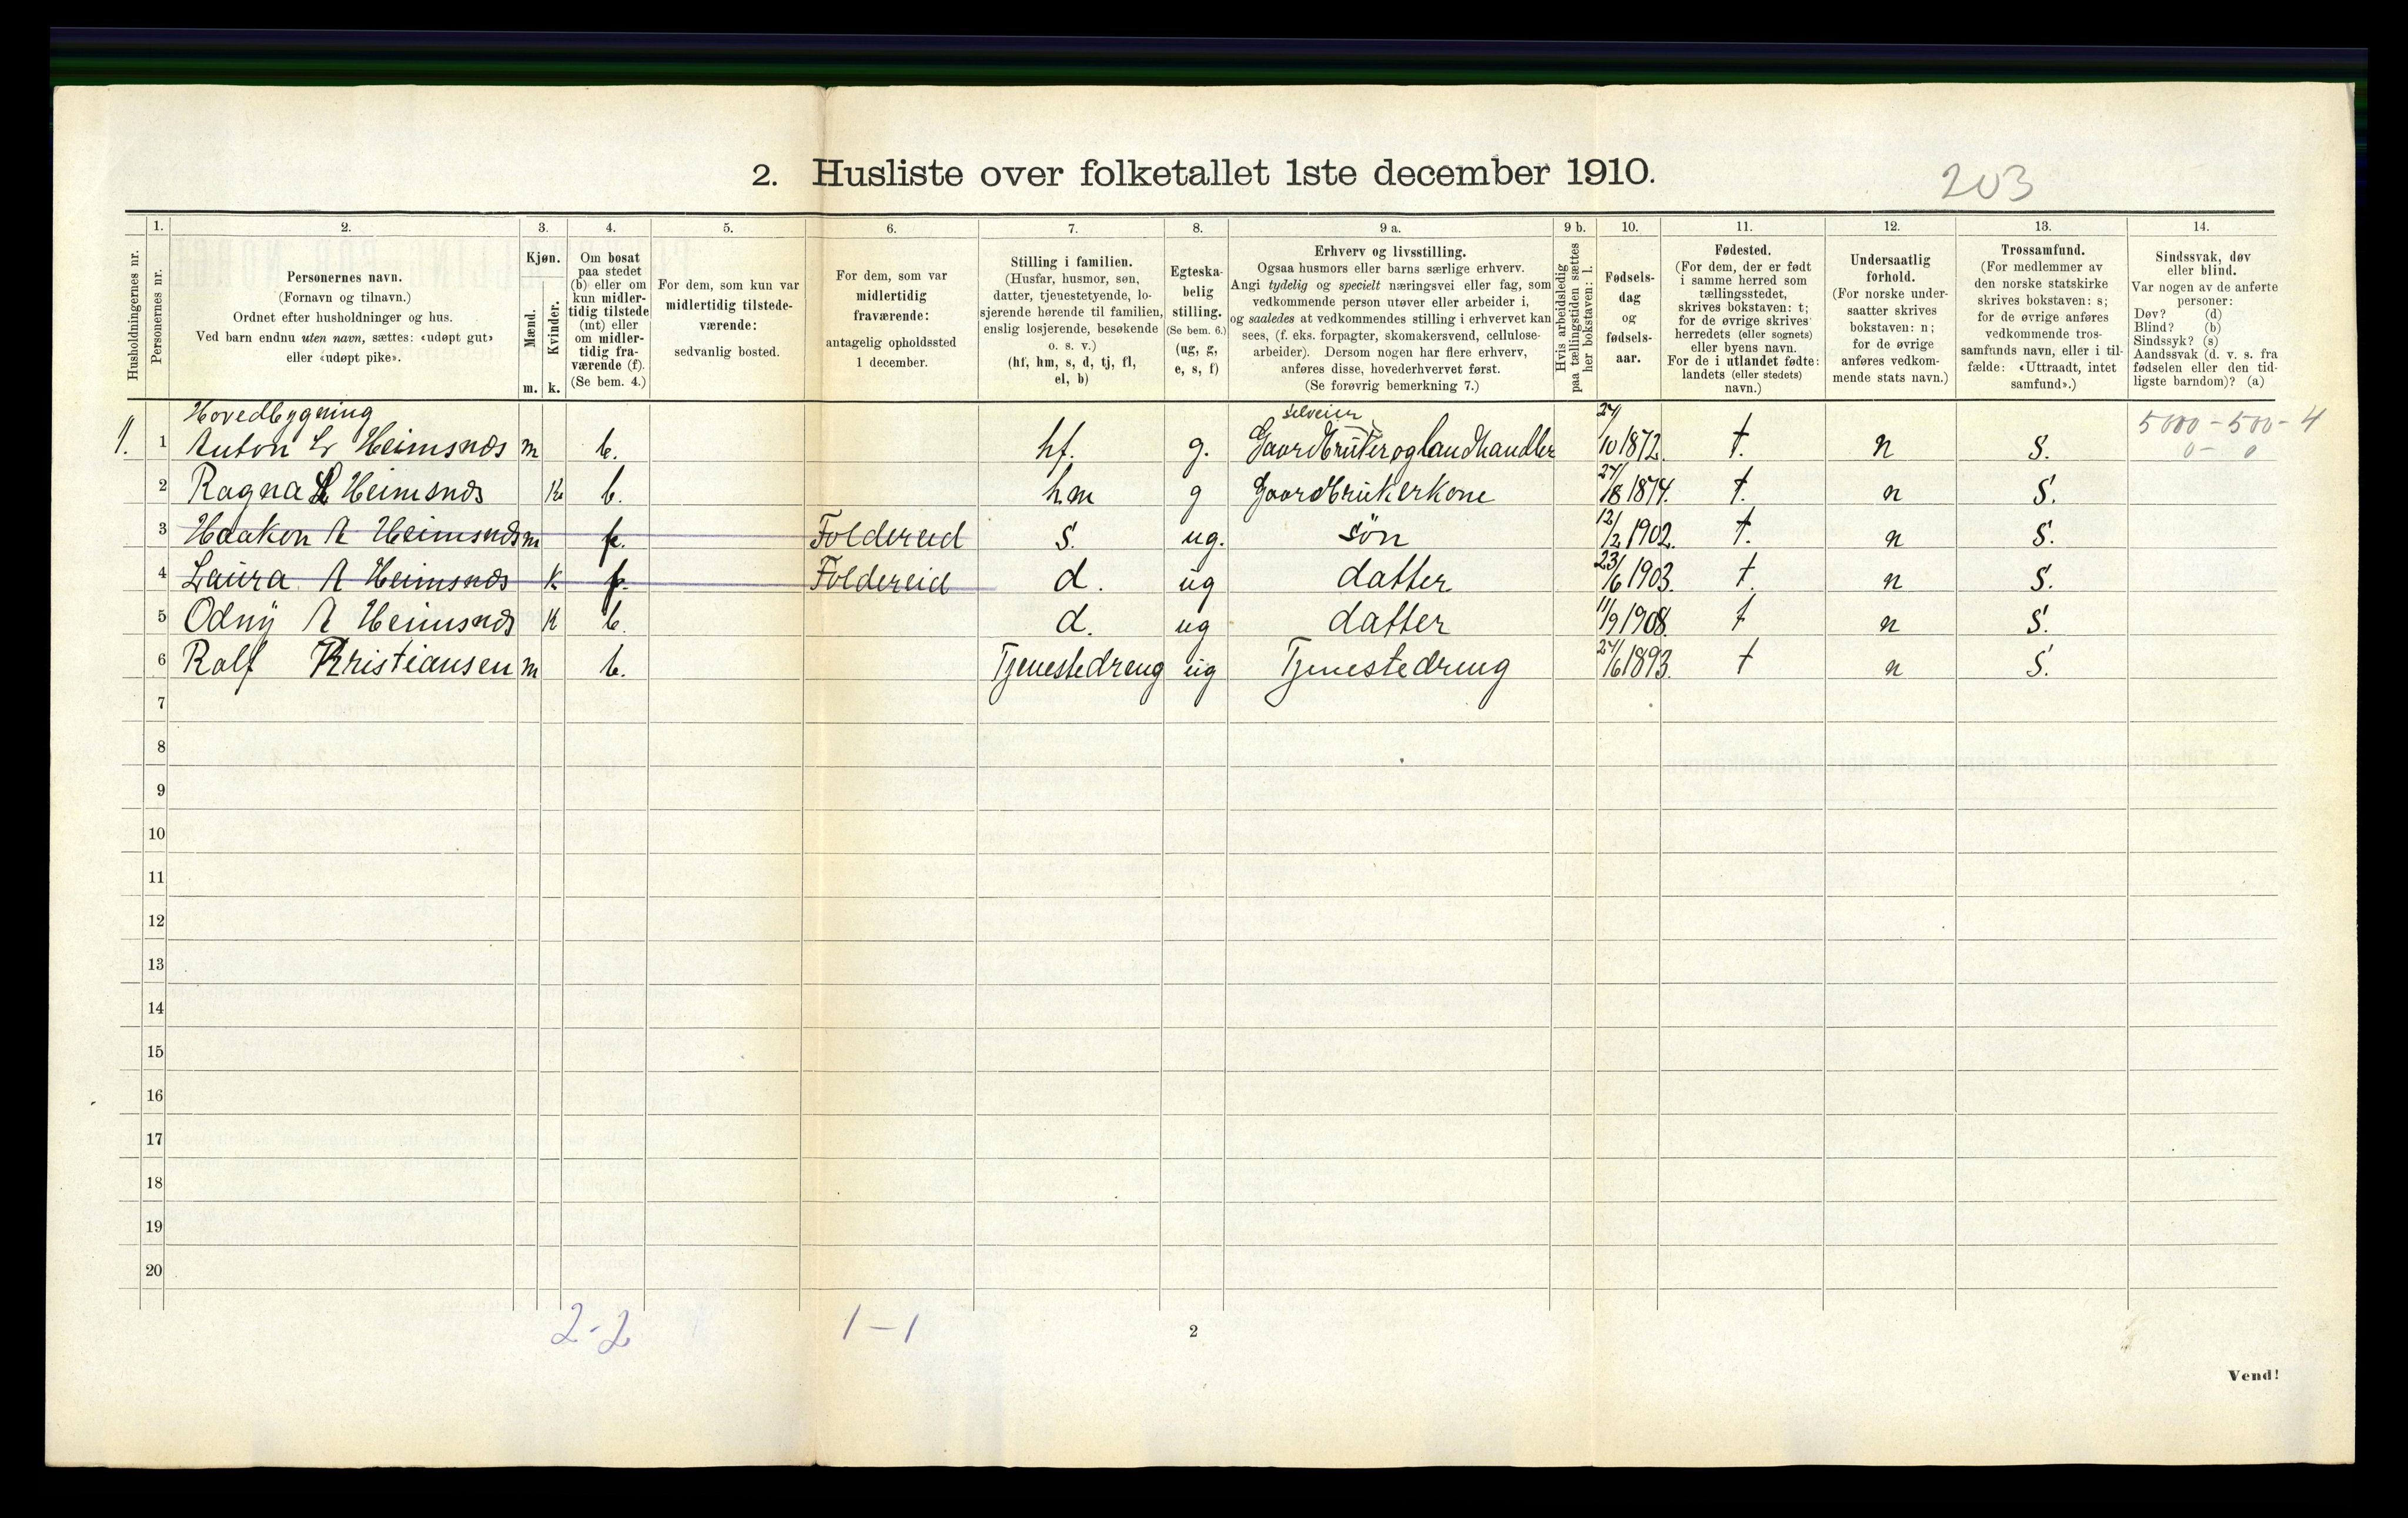 2. Husliste over folketallet 1ste december 1910.
203
Husholdningernes nr.
1.
Personernes nr.
2.
Personernes navn.
(Fornavn og tilnavn.)
Ordnet efter husholdninger og hus.
Ved barn endnu uten navn, sættes: «udøpt gut»
eller «udøpt pike».
3.
Kjøn.
Mænd.
Kvinder.
m. k.
4.
Om bosat
paa stedet
(b) eller om
kun midler-
tidig tilstede
(mt) eller
om midler-
tidig fra-
værende (f).
(Se bem. 4.)
5.
For dem, som kun var
midlertidig tilstede-
værende:
sedvanlig bosted.
6.
For dem, som var
midlertidig
fraværende:
antagelig opholdssted
1 december.
7.
Stilling i familien.
(Husfar, husmor, søn,
datter, tjenestetyende, lo-
sjerende hørende til familien,
enslig losjerende, besøkende
o. s. v.)
(hf, hm, s, d, tj, fl,
el, b)
8.
Egteska-
belig
stilling.
(Se bem. 6.)
(ug, g,
e, s, f)
9 a.
Erhverv og livsstilling.
Ogsaa husmors eller barns særlige erhverv.
Angi tydelig og specielt næringsvei eller fag, som
vedkommende person utøver eller arbeider i,
og saaledes at vedkommendes stilling i erhvervet kan
sees, (f. eks. forpagter, skomakersvend, cellulose-
arbeider). Dersom nogen har flere erhverv,
anføres disse, hovederhvervet først.
(Se forøvrig bemerkning 7.)
9 b.
Hvis arbeidsledig
paa tællingstiden sættes
her bokstaven: l.
10.
Fødsels-
dag
og
fødsels-
aar.
11.
Fødested.
(For dem, der er født
i samme herred som
tællingsstedet,
skrives bokstaven: t;
for de øvrige skrives
herredets (eller sognets)
eller byens navn.
For de i utlandet fødte:
landets (eller stedets)
navn.)
12.
Undersaatlig
forhold.
(For norske under-
saatter skrives
bokstaven: n;
for de øvrige
anføres vedkom-
mende stats navn.)
13.
Trossamfund.
(For medlemmer av
den norske statskirke
skrives bokstaven: s;
for de øvrige anføres
vedkommende tros-
samfunds navn, eller i til-
fælde: «Uttraadt, intet
samfund».)
14.
Sindssvak, døv
eller blind.
Var nogen av de anførte
personer:
Døv? (d)
Blind? (b)
Sindssyk? (s)
Aandssvak (d. v. s. fra
fødselen eller den tid-
ligste barndom)? (a)
Hovedbygning
selveier
5000-500-4
0 - 0
1. 1 Anton Heimsnæs m b. hf. g. Gaardbruker og landhandler 24/10 1872. t. n s.
2 Ragna Heimsnæs K b. hm g Gaardbrukerkone 24/8 1874. t. n s.
3 Haakon A Heimsnæs m f. Foldereid s. ug. søn 12/2 1902. t. n s.
4 Laura A Heimsnæs K f. Foldereid d. ug datter 23/6 1903. t. n s.
5 Odny A Heimsnæs K b. d. ug datter 11/9 1908. t n s.
6 Ralf Kristiansen m b. Tjenestedreng ug Tjenestedreng 24/6 1893. t n s.
7
8
9
10
11
12
13
14
15
16
17
18
19
20
2-2
1-1
2
Vend!